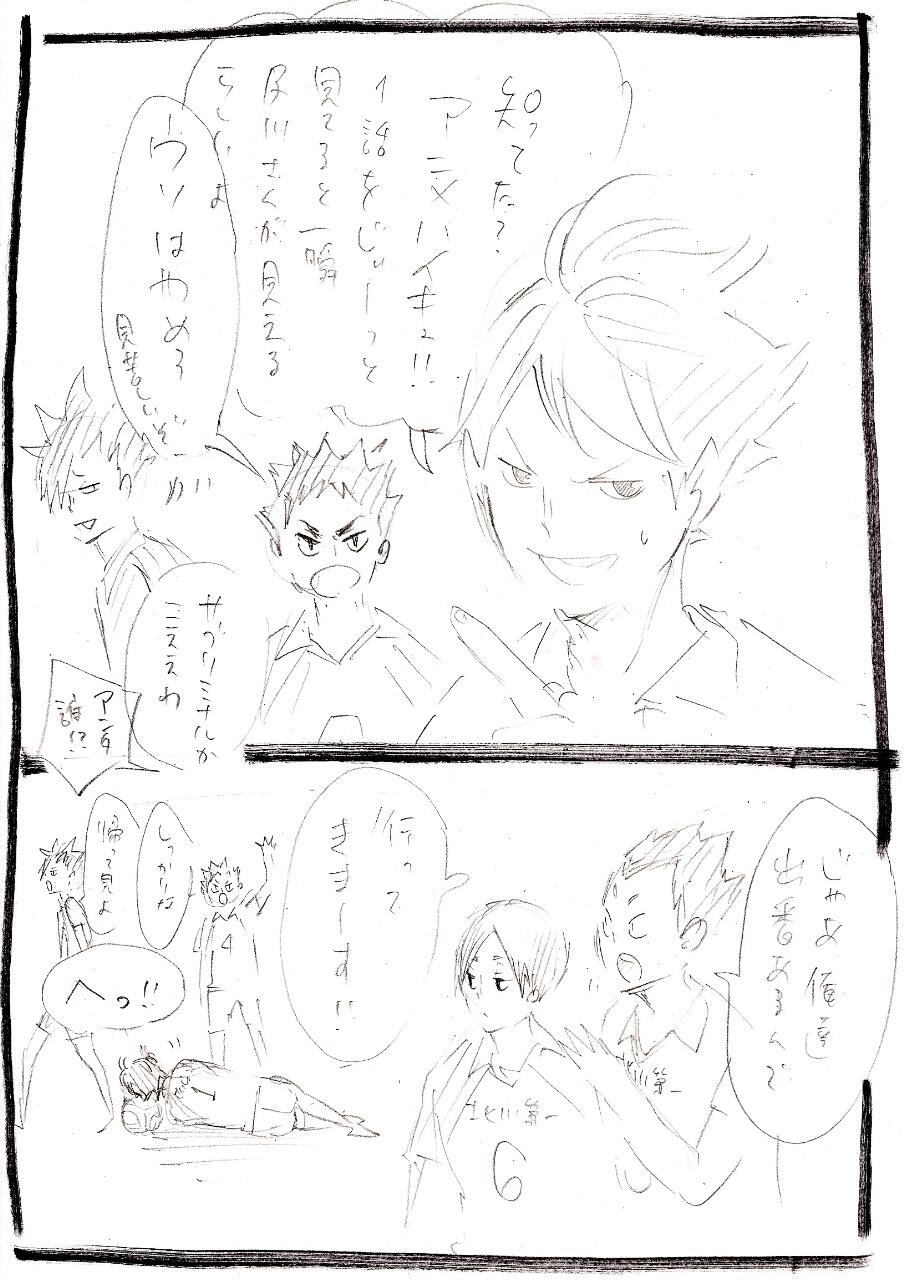 知ってた?
アニメハイキュ!!
1話をじぃーっと
見てると一瞬
及川さんが見える
らしいよ
ウソはやめろ
見苦しいぞ
サブリミナルか
こええわ
誰!?
じゃあ俺達
出番あるんで
行って
きまーす!!
しっかりな
帰って見よ
へっ!!
北川第一
6
川第一
4
1